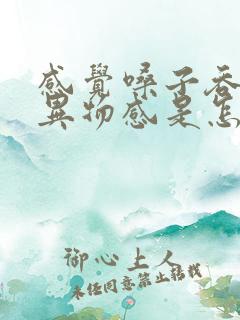 感覺嗓子吞
異物感是怎
御心上人
未經同意禁止轉載